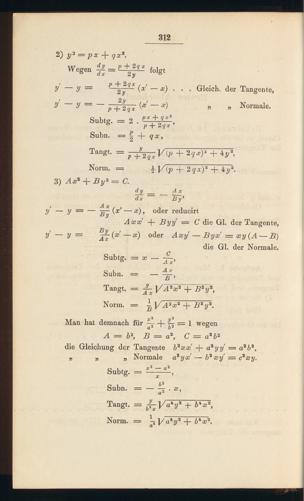 312
2) y² = px + qx².
Wegen dy/dx = (p + 2qx)/2y folgt
y' − y = (p + 2qx)/2y (x' − x) . . . Gleich. der Tangente,
y' − y = − 2y/(p + 2qx) (x' − x) „ „ Normale.
Subtg. = 2 . (px + qx²)/(p + 2qx),
Subn. = p/2 + qx,
Tangt. = y/(p + 2qx) √(p + 2qx)² + 4y².
Norm. = ½ √(p + 2qx)² + 4y².
3) Ax² + By² = C.
dy/dx = − Ax/By,
y' − y = − Ax/By (x' − x), oder reducirt
Axx' + Byy' = C die Gl. der Tangente,
y' − y = By/Ax (x' − x) oder Axy' − Byx' = xy (A − B)
die Gl. der Normale.
Subtg. = x − C/Ax,
Subn. = − Ax/B,
Tangt. = y/Ax √A²x² + B²y²,
Norm. = 1/B √A²x² + B²y².
Man hat demnach für x²/a² + y²/b² = 1 wegen
A = b², B = a², C = a²b²
die Gleichung der Tangente b²xx' + a²yy' = a²b²,
„ „ „ Normale a²yx' − b²xy' = c²xy.
Subtg. = (x² − a²)/x,
Subn. = − b²/a² . x,
Tangt. = y/b²x √a⁴y² + b⁴x²,
Norm. = 1/a² √a⁴y² + b⁴x².